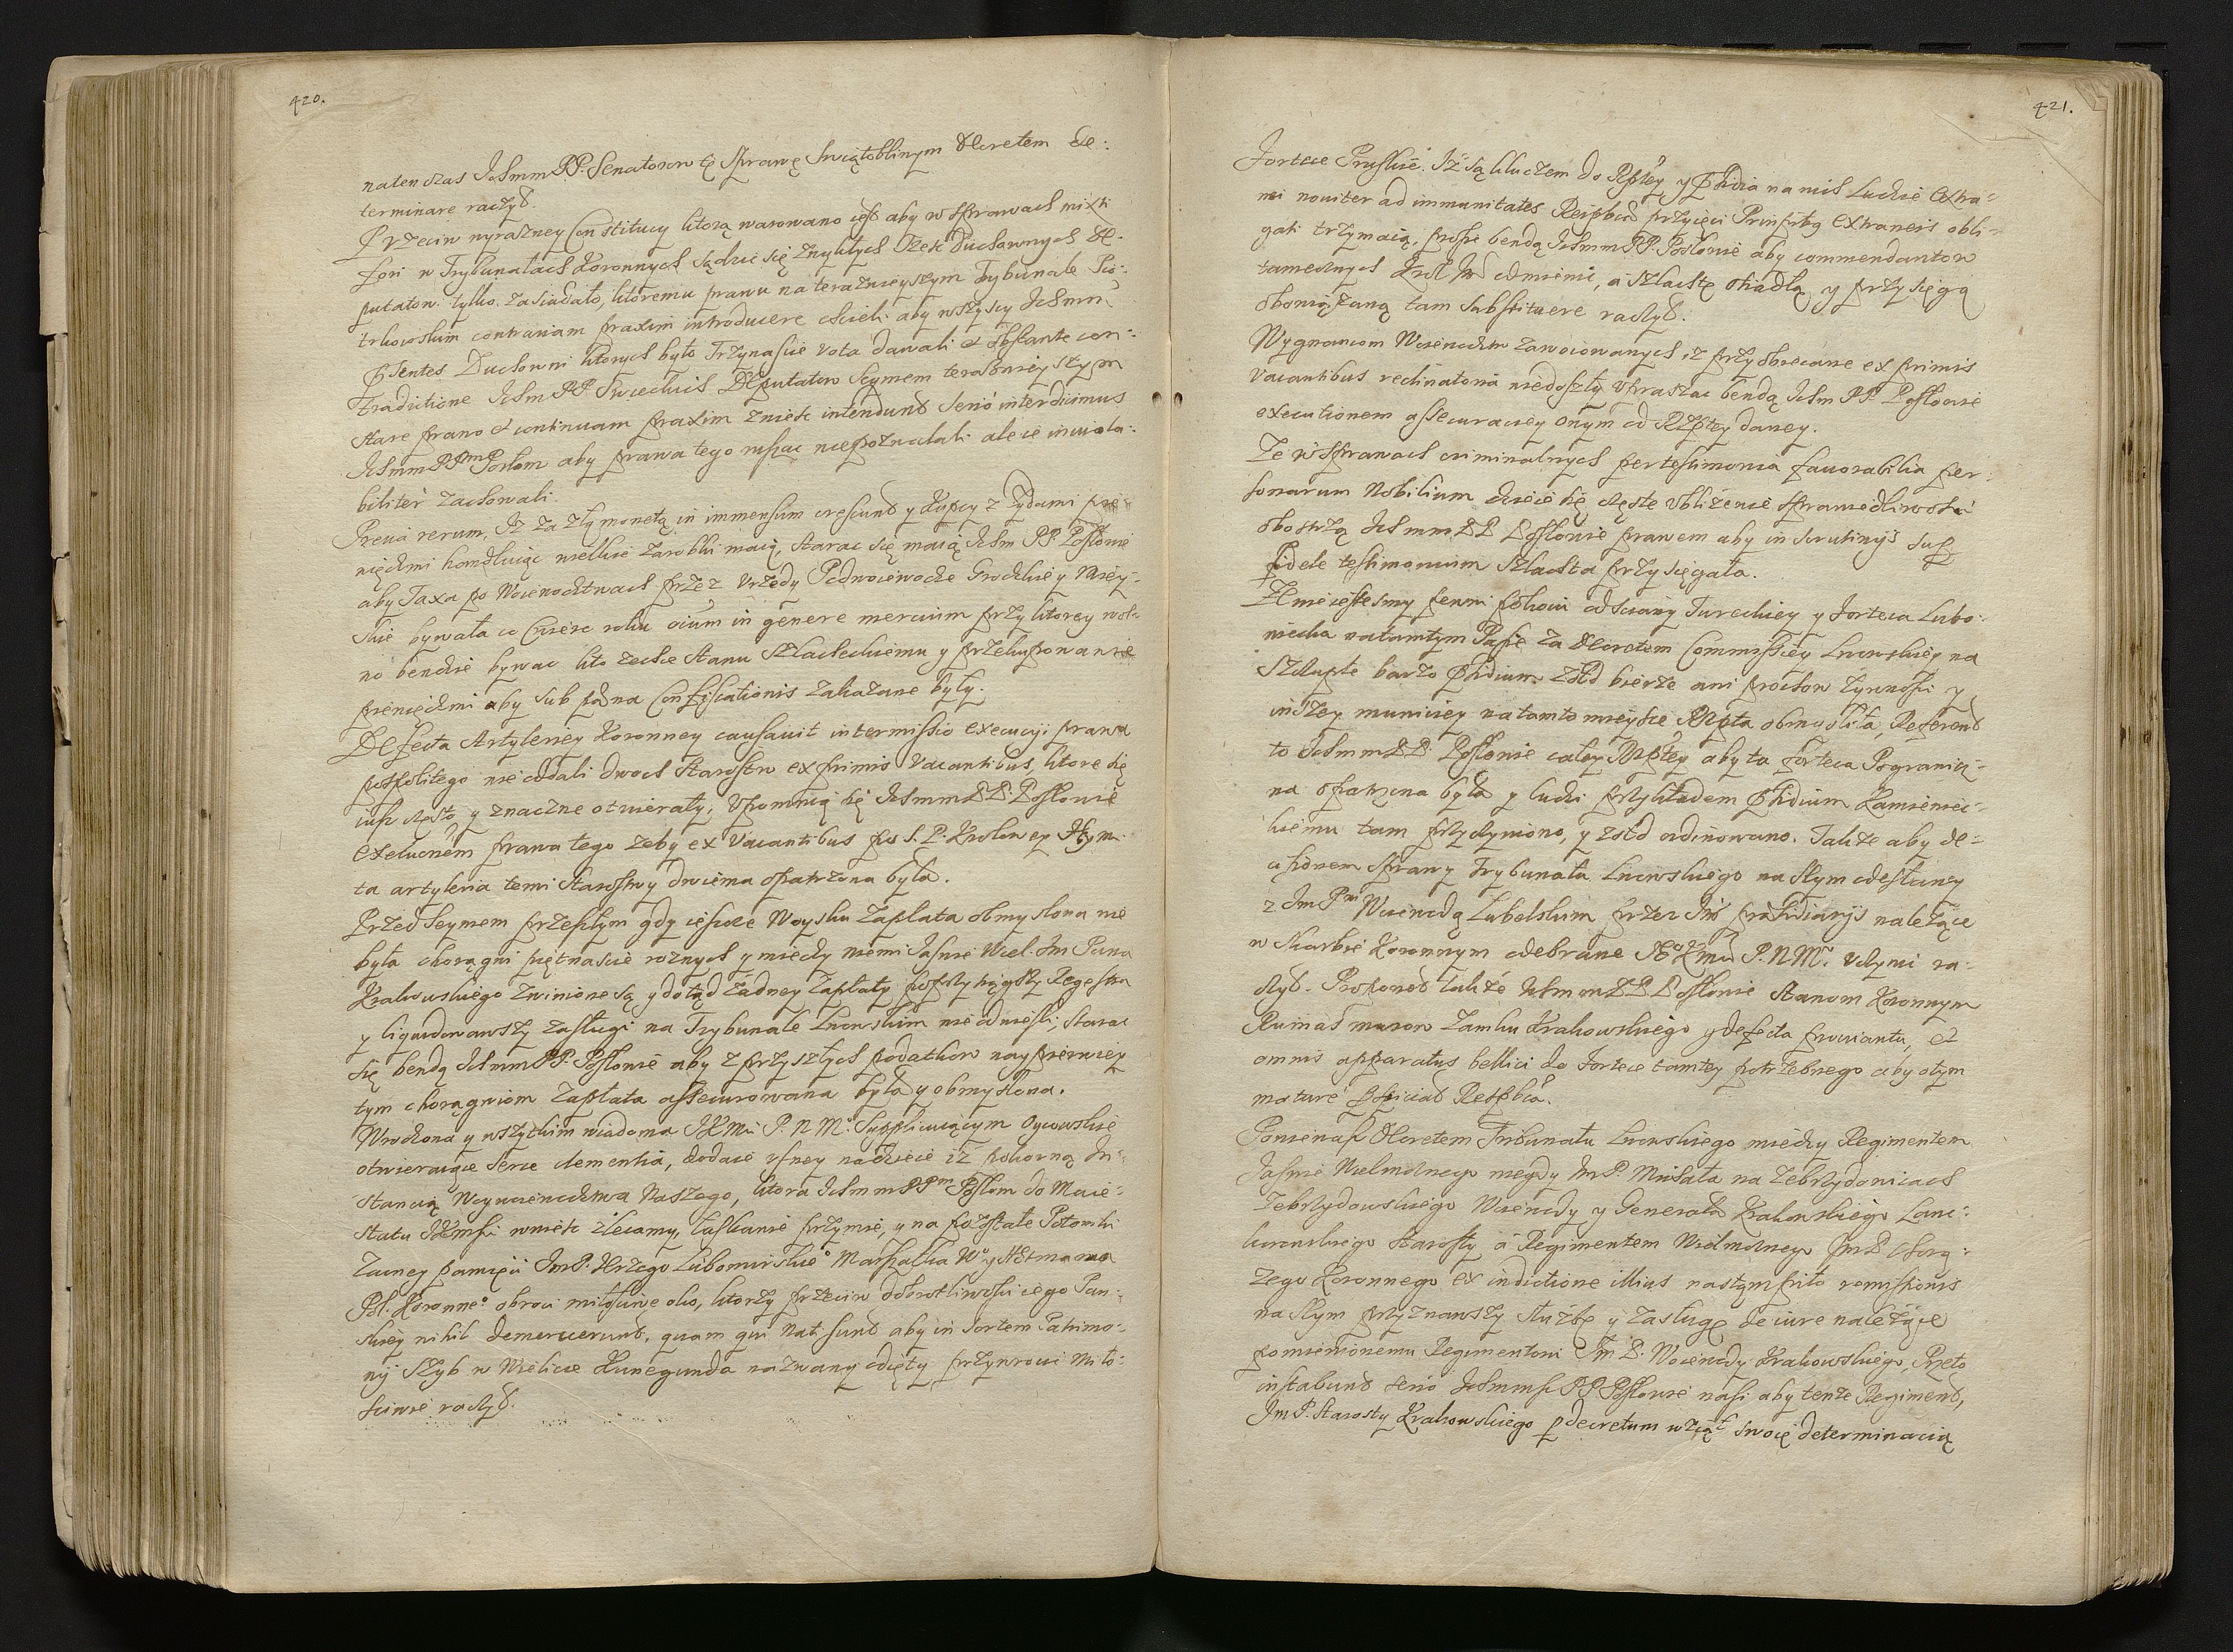 420.
naten czas Ichmm PP. Senatorow tę sprawę swiątobliwym decretem de:
terminare raczył.
Przeciw wyrazney Constitucy ktorą warowano iest aby w sprawach mixti
fori w Trybunałach Koronnych sądzic się zwykłych sześc duchownych de-
putatow tylko zasiadało, ktoremu prawu na teraznieyszym Trybunale Pio-
trkowskim contrariam praxim introducere chcieli aby wszyscy Ichmm
Psentes Duchowni ktorych było Trzynascie vota dawali et obstante con-
tradictione Ichm PP. Swieckich Deputatow Seymem terazniey szym
stare prawo et continuam praxim zniesc intendunt serio interdicimus
Ichmm PPm Posłom aby prawa tego ruszac niepozwalali ale ie inviola-
biliter zachowali.
Precia rerum, Iz za złą monetą in immensum crescunt y Kupcy z Zydami pie-
niędzmi handluiąc wielkie zarobki maią, starac się maią Ichm PP. Posłowie
aby Taxa po Woiewodztwach przez Vrzędy Podwoiewodze Grodzkie y Miey-
skie bywała co cwierc roku oium in genere mercium przy ktorey wol-
no bendzie bywac kto zechce stanu szlacheckiemu y przekupowanie
pieniędzmi aby sub pæna Confiscationis zakazane były.
Defecta Artyleriey Koronney causavit intermissio execucyi prawa
pospolitego nie oddali dwoch starostw ex primis Vacantibus, ktore się
iusz często y znaczne otwierały; Vpomnią się Ichmm PP. Posłowie
execucnem prawa tego zeby ex vacantibus po S. P. Krolowey Ieym.
ta artyleria temi starostwy dwiema opatrzona była.
Przed Seymem przeszłym gdy ieszcze Woysku Zapłata obmyslona nie
była chorągwi piętnascie roznych y miedzy niemi Iasnie Wiel. Im Pana
Krakowskiego zwinione są, y dotąd zadney zapłaty poprzysiągszy Regestra
y liquidowawszy zasługi na Trybunale Lwowskim nie odniesli; starac
się bendą Ichmm PP. Posłowie aby z przyszłych podatkow naypierwiey
tym chorągwiom zapłata assecurowana była y obmyslona.
Wrodzona y wszytkim wiadoma IKMci P. N. Mo. Supplicuiącym Oycowskie
otwieraiące serce clementia, dodaie vfney nadzieie iz pokorną In-
stancią Woyewodztwa Naszego, ktora Ichmm PPm Posłom do Maie-
statu IKMsci wniesc zlecamy, łaskawie przyimie, y na pozostałe Potomki
zacney pamięci ImP. Ierzego Lubomirskieo Marszałka Wo y Hetmana
Pol. Koronneo obroci miłosciwe oko, ktorzy przeciw dobrotliwosci iego Pan-
skiey nihil demeruerunt, quam qui nati sunt aby in sortem Patrimo-
nij Szyb w Wielicze Kunegunda nazwany odięty przywroci miło-
sciwie raczył.
421.
Fortece Pruskie. Iz są kluczem do Rptey y Psidia na nich ludzie Extra-
nei noviter ad immunitates Reipbcæ przyięci Principibg Extraneis obli-
gati trzymaią, prosic bendą Ichmm PP. Posłowie aby commendantow
tamecznych Krol Im odmienic, á szlachtę osiadłą, y przysięgą
obowiązaną tam substituere raczył.
Wygnancom Woiewodztw zawoiowanych, iz przyobiecane ex primis
vacantibus reclinatoria niedoszły Vpraszac bendą Ichm PP. Posłowie
executionem assecuraciey onym od Rzptey daney.
Ze w sprawach criminalnych per testimonia favorabilia per-
sonarum Nobilium dzieie się częste vbliżenie sprawiedliwosci
obostrzą Ichmm PP. Posłowie prawem aby in scrutinijs sup
fidele testimonium szlachta przysięgała.
Ze nieiestesmy pewni pokoiu od sciany Tureckiey y Forteca Lubo-
wiecka natamtym Pasie za decretem Commissiey Lwowskiey na
szczupłe barzo Psidium zołd bierze ani prochow zywnosci y
inszey municiey na tamto mieysce Rzpta obmysliła, Referent
to Ichmm PP. Posłowie całey Rzptey aby ta forteca Pogranicz-
na opatrzona była y ludzi przykładem Psidium Kamieniec-
kiemu tam przyczyniono, y zołd ordinowano. Takze aby de-
cisionem sprawy Trybunału Lwowskiego na Seym odesłaney
z ImPm Woiewodą Lubelskim przez Im præsidiarijs nalezące
w Skarbie Koronnym odebrane IKMci P. N. Mu. vczyni ra-
czył. Proponet takze Ichmm PP. Posłowie stanom Koronnym
Ruinas murow Zamku Krakowskiego y defecta prowiantu, et
omnis apparatus bellici do Fortece tamtey potrzebnego aby otym
mature Pspiciat Respbca.
Poniewasz decretem Tribunału Lwowskiego miedzy Regimentem
Iasnie Wielmoznego niegdy ImP. Michała na Zebrzydowicach
Zebrzydowskiego Woiewody y Generała Krakowskiego Lanc-
koronskiego Starosty á Regimentem Wielmoznego ImP. Chorą-
zego Koronnego ex indictione illius nastąmpiło remissionis
na Seym przyznawszy słuzbę y zasługę de iure nalezące
pomienionemu Regimentowi ImP. Woiewody Krakowskiego, Przeto
instabunt serio Ichmmsc PP. Posłowie nasi aby tenze Regiment,
ImP. Starosty Krakowskiego p decretum wziął swoię determinacią